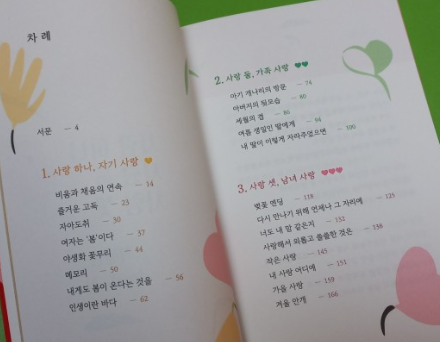 차례
서문 — 4
1. 사랑 하나, 자기 사랑
비움과 채움의 연속 — 14
즐거운 고독 — 23
자아도취 — 30
여자는 '봄'이다 — 37
야생화 꽃무리 — 44
메모리 — 50
내게도 봄이 온다는 것을 — 56
인생이란 바다 — 62
2. 사랑 둘, 가족 사랑
아기 캐나리의 방문 — 74
아버지의 뒷모습 — 80
세월의 결 — 86
여름 생일인 딸에게 — 94
내 딸이 이렇게 자라주었으면 — 100
3. 사랑 셋, 남녀 사랑
벚꽃 엔딩 — 118
다시 만나기 위해 언제나 그 자리에 — 125
너도 내 맘 같은지 — 132
사랑해서 외롭고 쓸쓸한 것은 — 138
작은 사랑 — 145
내 사랑 어디에 — 151
가을 사랑 — 159
겨울 안개 — 166